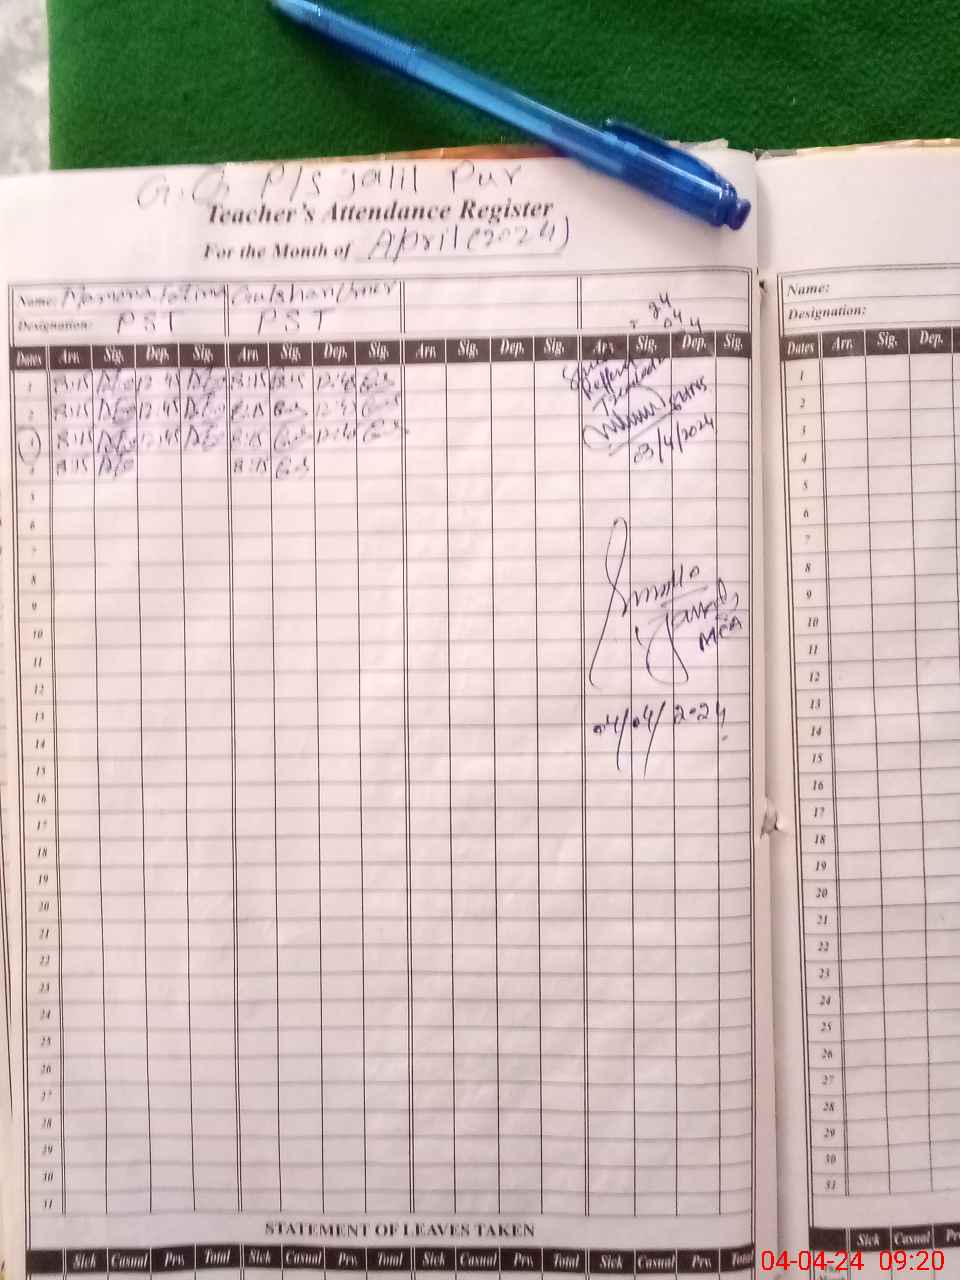 G.G P/S jalil Pur
Teacher's Attendance Register
For the Month of April (2024)
Name: Mamona Fatima Gulshan Umer
Designation: PST PST
24
04
Dates Arr. Sig. Dep. Sig. Arr. Sig. Dep. Sig. Arr. Sig. Dep. Sig. Arr. Sig. Dep. Sig.
1 8:15 12:45 8:15 8:15 12:45
2 8:15 12:45 8:15 12:45
3 8:15 12:45 8:15 12:45
4 8:15 8:15
03/4/2024
5
6
7
8
9
10
MEA
11
12
13
04/04/2024
14
15
16
17
18
19
20
21
22
23
24
25
26
27
28
29
30
31
STATEMENT OF LEAVES TAKEN
Sick Casual Prv. Total Sick Casual Prv. Total Sick Casual Prv. Total Sick Casual Prv. Total
Name:
Designation:
Dates Arr. Sig. Dep.
1
2
3
4
5
6
7
8
9
10
11
12
13
14
15
16
17
18
19
20
21
22
23
24
25
26
27
28
29
30
31
Sick Casual
04-04-24 09:20